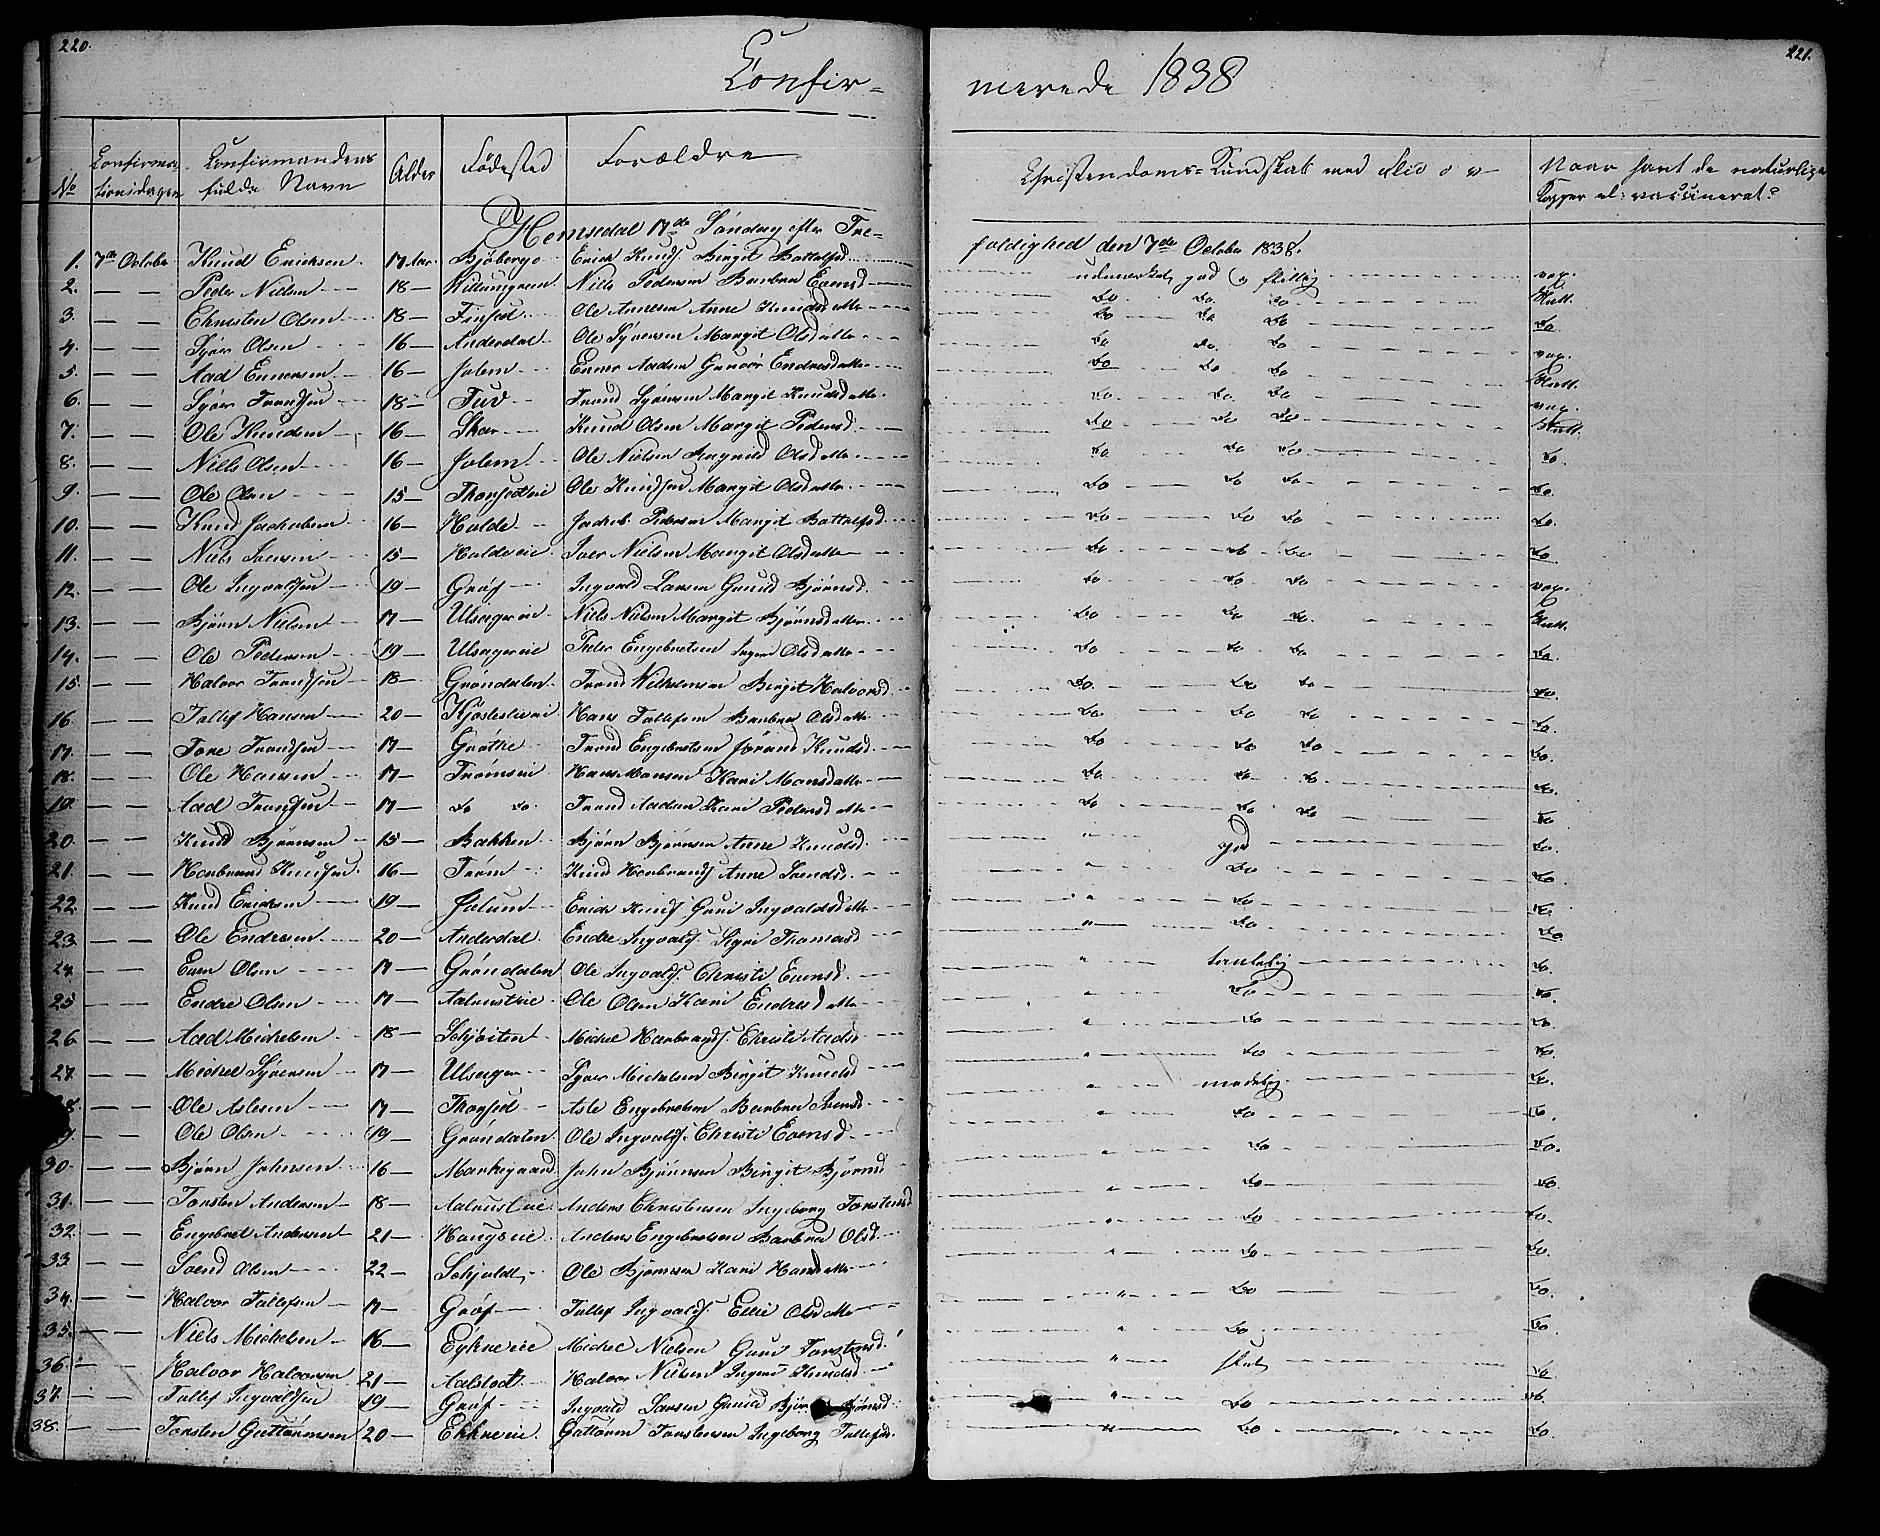 220.
Confir=
merede 1838
221.
No Confirma-tionsdagen Confirmandens fulde Navn Alder Fødested Forældre Christendoms=Kundskab med Flid o v Naar havt de naturlige Kopper el: vaccineret?
Hemsedal 17de Søndag efter Tre=
foldighed den 7de October 1838.
1. 7de October Knud Ericksen 17 Aar. Erick Knuds. Birgit Bottolfsd. udmærket god og flittig vax.
2. — — Peder Nielsen 18 — Niels Pedersen Barbra Evensd Do Do Do
3. — — Christen Olsen 18 — Finset Ole Anne Knudsdatter Do Do Do Do
4. — — Syver Olsen 16 — Anderdal Ole Syversen Margit Olsdatter Do Do Do vax.
5. — — Aad Ennersen 16 — Jolem Enner Aadsen Gunvor Endresdatter Do Do Do
6. — — Syver Trondsen 18 — Tuv Trond Syversen Margit Knudsdatter Do Do Do vax.
7. — — Ole Knudsen 16 — Skar Knud Olsen Margit Pedersd. Do Do Do
8. — — Niels Olsen 16 — Jolem Ole Nielsen Ragnild Olsdatter Do Do Do Do.
9. — — Ole Olsen 15 — Ole Knudsen Margit Olsdatter. Do Do Do Do.
10. — — Knud Jachobsen 16 — Holde Jachob Pedersen Margit Bottolfsd. Do Do Do Do.
11. — — Niels Iversen 15 — Holdeeie Iver Nielsen Margit Olsdatter Do Do Do Do
12. — — Ole Ingvaldsen 19 — Grøf Ingvald Larsen Gunild Bjørnsd. Do Do Do vax.
13. — — Bjørn Nielsen 17 — Ulsagereie Niels Nielsen Margit Bjørnsdatter. Do Do Do
14. — — Ole Pedersen 19 — Ulsagereie Peder Engebretsen Ingeri Olsdatter Do Do Do Do
15. — — Halvor Trondsen 18 — Grøndalen Trond Wilhelmsen Birgit Halvorsd. Do. Do Do Do.
16 — — Tollef Hansen 20 — Hans Tollefsen Barbra Olsdatter Do. Do Do Do.
17. — — Tore Trondsen 17 — Grøthe Trond Engebretsen Jørand Knudsd. Do Do Do Do.
18. — — Ole Hansen 17 — Trømseie Hans Monsen Kari Monsdatter Do Do Do Do.
19. — — Aad Trondsen 17 — Do Do. Trond Aadsen Kari Pedersdatter Do Do Do Do
20. — — Knud Bjørnsen 15 — Bakken Bjørn Bjørnsen Anne Knudsd. " god Do.
21. — — Herbrand Knudsen. 16 — Trøm Knud Herbrands. Anne Svendsd. " Do Do.
22. — — Knud Ericksen 19 — Jolum Erick Knuds. Guri Ingvaldsdatter " Do Do.
23. — — Ole Endresen 20 — Anderdal. Endre Ingvalds. Sigri Thomasd " Do Do
24. — — Even Olsen 17 — Grøndalen Ole Ingvalds. Christi Evensd. " taalelig Do.
25 — — Endre Olsen 17 — Aalrusteie Ole Olsen Kari Endresdatter " Do Do.
26 — — Aad Mickelsen 18 — Mickel Herbrands. Christi Aadsd " Do Do.
27. — — Mickel Syversen 17 — Ulsager Syver Mickelsen Birgit Knudsd " Do Do.
28. — — Ole Aslesen 17 — Asle Engebretsen Barbra Iversd " maadelig Do.
29. — — Ole Olsen 19 — Grøndalen Ole Ingvalds. Christi Evensd. " Do Do.
30. — — Bjørn Johnsen 16 — Markegaard John Bjørnsen Birgit Bjørnsd " Do Do.
31. — — Torsten Andersen 18 — Aalrusteie Anders Christensen Ingeborg Torstensd " Do Do.
32. — — Engebret Andersen 21 — Haugseie Anders Engebretsen Barbra Olsd. " Do Do.
33. — — Svend Olsen 22 — Ole Bjørnsen Kari Hansdatter " Do Do.
34. — — Halvor Tollefsen 17 — Grøf Tollef Ingvalds. Ellie Olsdatter " Do Do.
35. — — Niels Mickelsen 16 — Eykreeie Mickel Nielsen Guri Torstensd. " Do Do.
36. — — Halvor Halvorsen 21 — Halvor Nielsen Ingeri Knudsd " slet Do
37. — — Tollef Ingvaldsen 19 — Grøf Ingvald Larsen Gunild Bjørnsd. " Do Do.
38. — — Torsten Guttormsen 20 — Ekkreeie. Guttorm Torstensen Ingeborg Tollefsd. " Do Do.